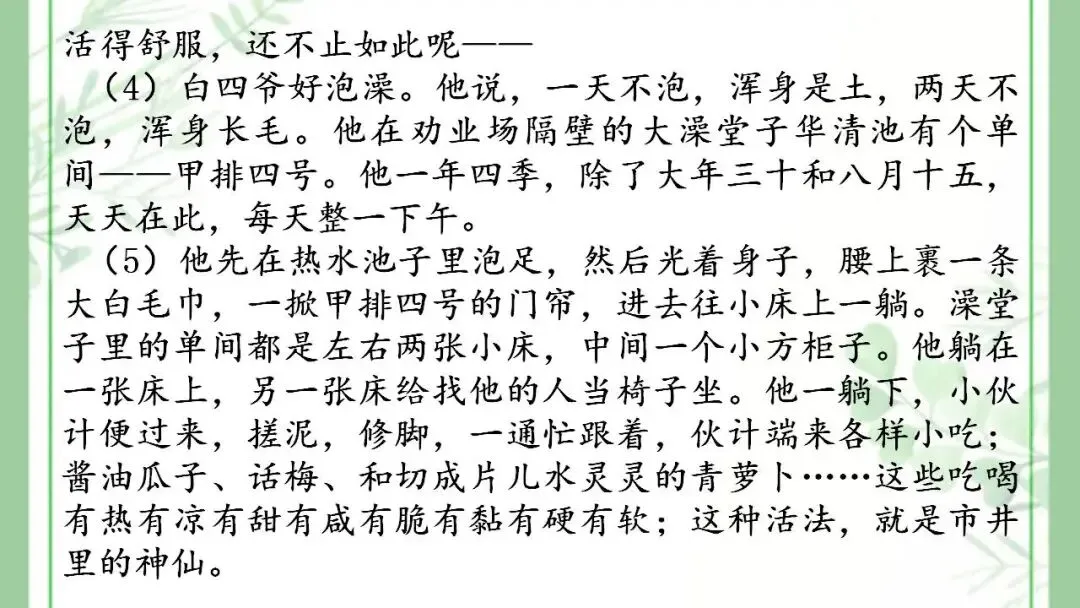 活得舒服，还不止如此呢——
（4）白四爷好泡澡。他说，一天不泡，浑身是土，两天不
泡，浑身长毛。他在劝业场隔壁的大澡堂子华清池有个单
间——甲排四号。他一年四季，除了大年三十和八月十五，
天天在此，每天整一下午。
（5）他先在热水池子里泡足，然后光着身子，腰上裹一条
大白毛巾，一掀甲排四号的门帘，进去往小床上一躺。澡堂
子里的单间都是左右两张小床，中间一个小方柜子。他躺在
一张床上，另一张床给找他的人当椅子坐。他一躺下，小伙
计便过来，搓泥，修脚，一通忙跟着，伙计端来各样小吃；
酱油瓜子、话梅、和切成片儿水灵灵的青萝卜……这些吃喝
有热有凉有甜有咸有脆有黏有硬有软；这种活法，就是市井
里的神仙。